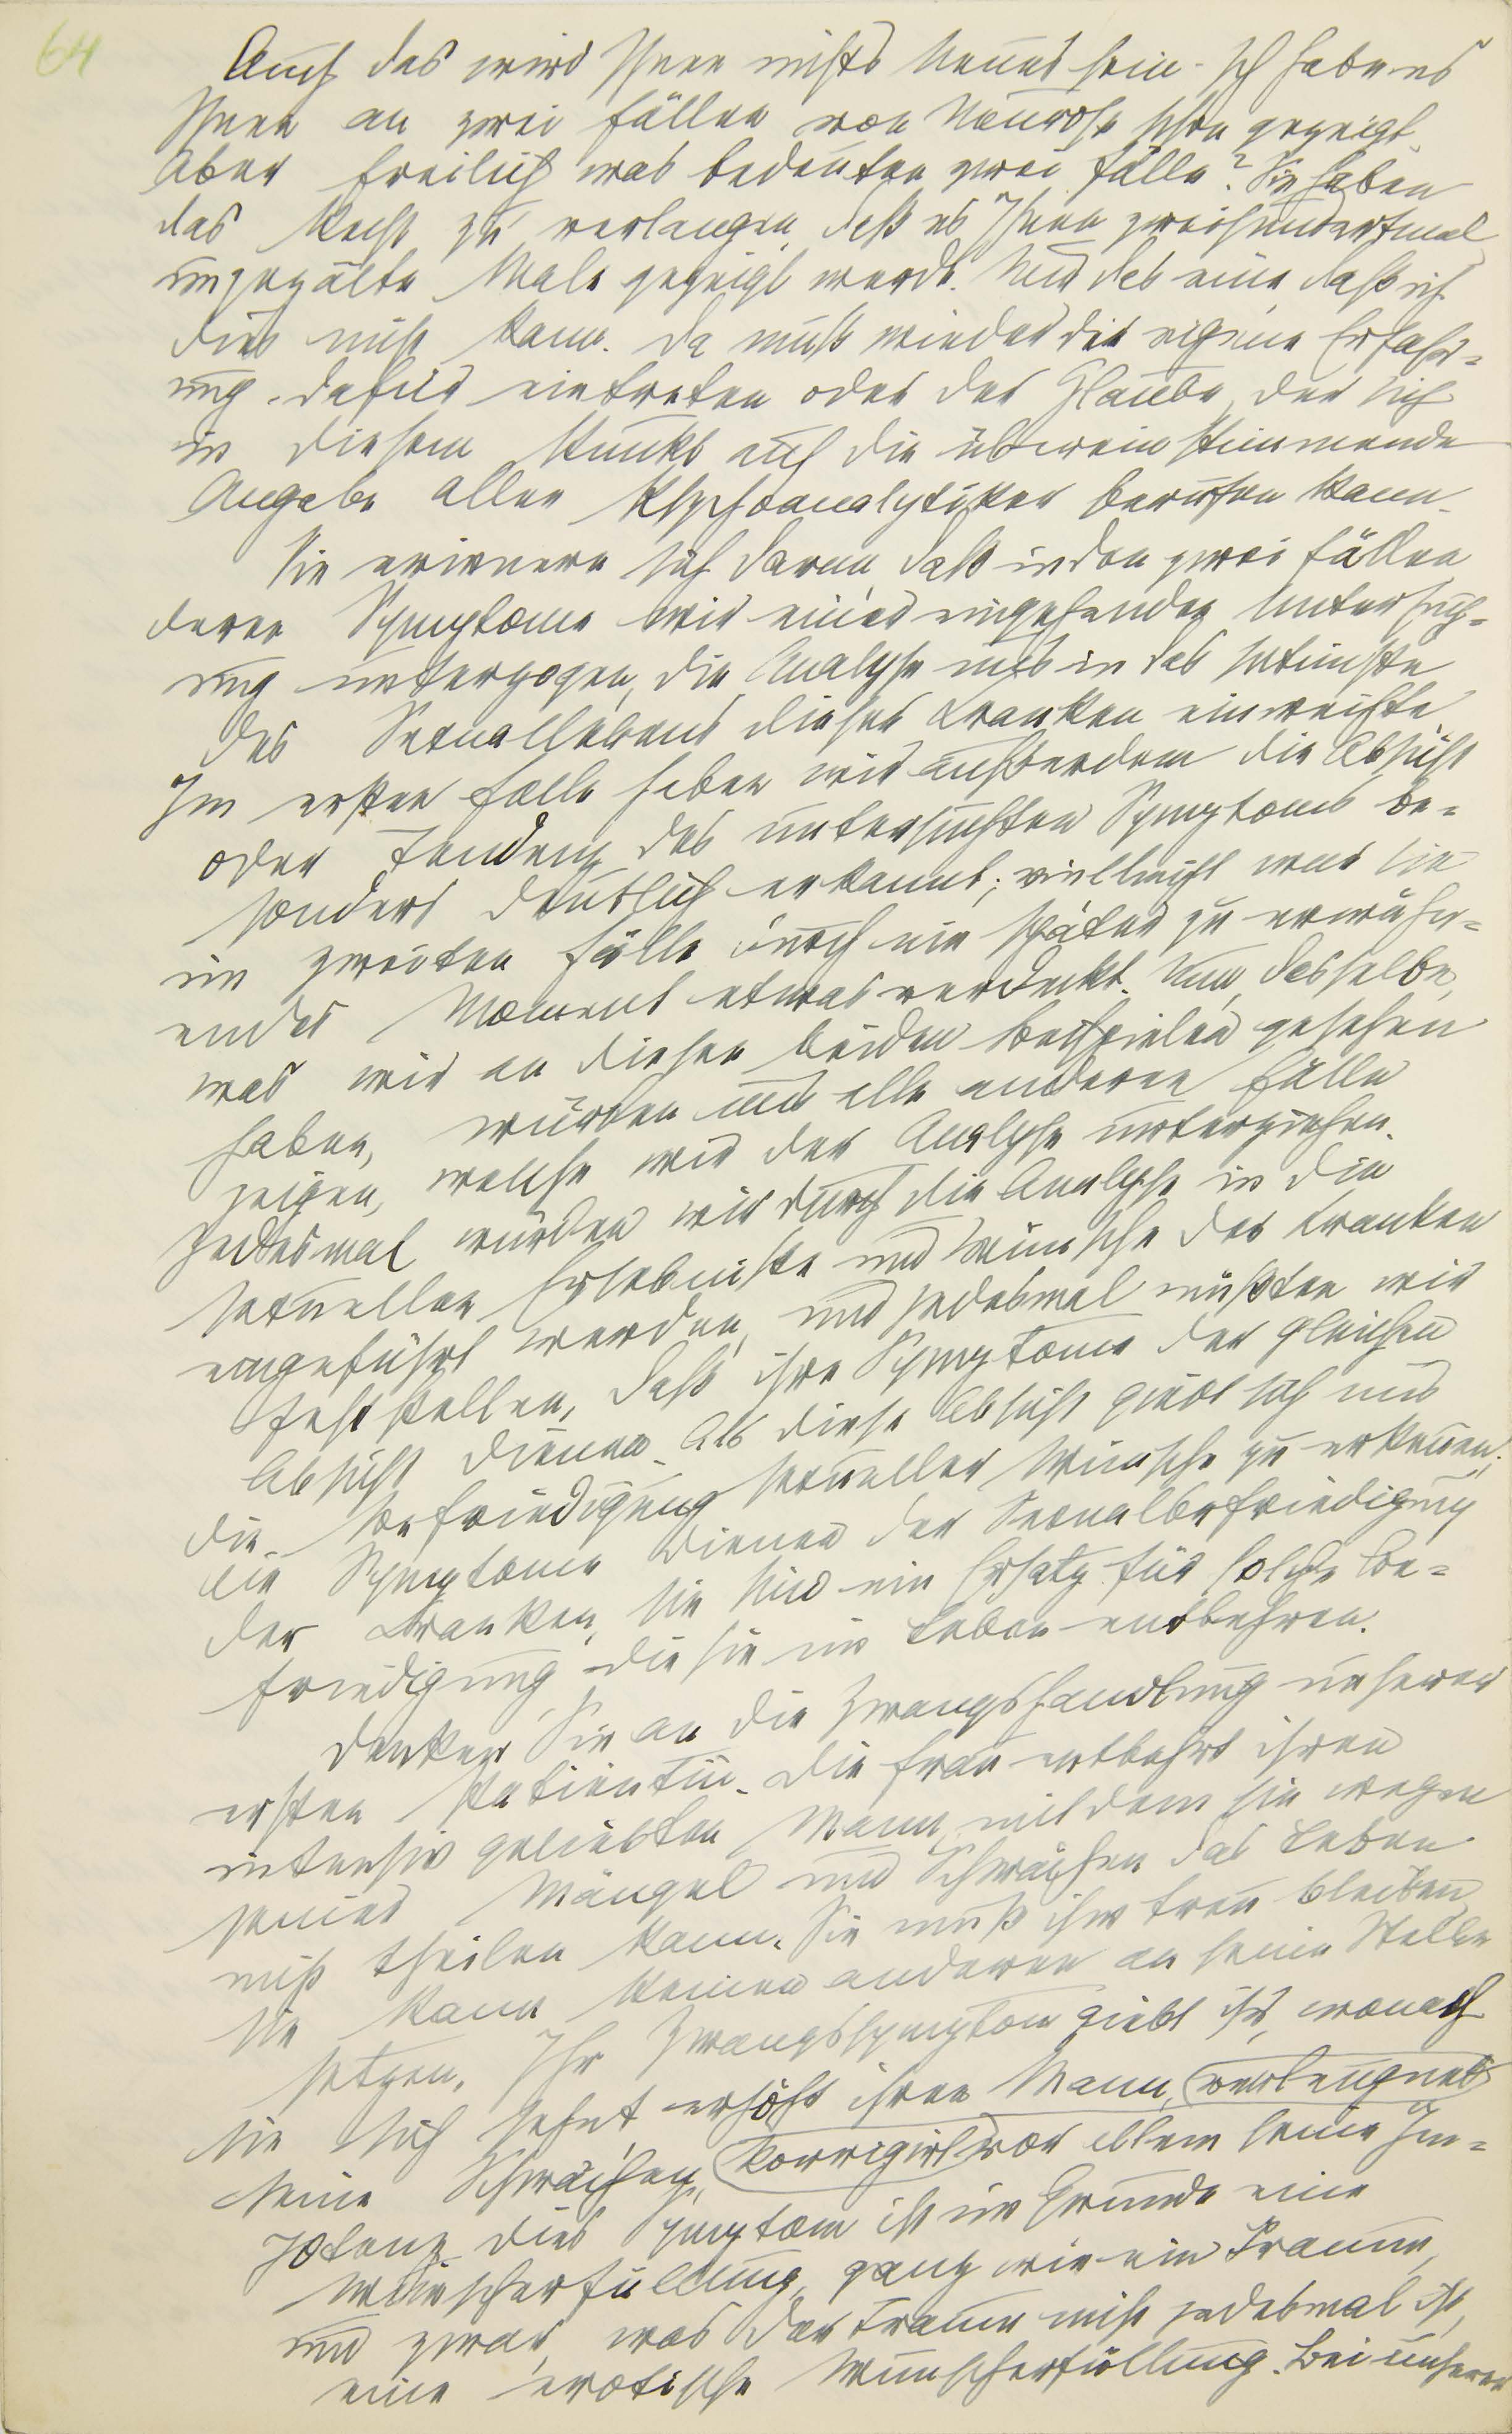 64
Auch das wird Ihnen nichts Neues sein. Ich habe es
Ihnen an zwei Fällen von Neurose schon gezeigt.
Aber freilich was bedeuten zwei Fälle? Sie haben
das Recht zu verlangen, daß es Ihnen zweihundertmal
ungezälte Male gezeigt werde. Nur das eine daß ich
dies nicht kann. Da muß wieder die eigene Erfahr=
ung dafür eintreten oder der Glaube, der sich
in diesem Punkt auf die übereinstimmende
Angabe aller Psychoanalytiker berufen kann.
Sie erinnern sich daran, daß in den zwei Fällen
deren Symptome wir einer eingehenden Untersuch=
ung unterzogen, die Analyse uns in das Intimste
des Sexuallebens dieser Kranken einweihte.
Im ersten Falle haben wir außerdem die Absicht
oder Tendenz des untersuchten Symptoms be=
sonders deutlich erkannt; vielleicht war sie
im zweiten Fälle durch ein später zu erwähn=
endes Moment etwas verdeckt. Nun, dasselbe,
was wir an diesen beiden Beispielen gesehen
haben, würden uns alle anderen Fälle
zeigen, welche wir der Analyse unterziehen.
Jedesmal würden wir durch die Analyse in die
sexuellen Erlebnisse und Wünsche des Kranken
eingeführt werden, und jedesmal müßten wir
feststellen, daß ihre Symptome der gleichen
Absicht dienen. Als diese Absicht giebt sich uns
die Befriedigung sexueller Wünsche zu erkennen;
die Symptome dienen der Sexualbefriedigung
der Kranken, sie sind ein Ersatz für solche Be=
friedigung, die sie im Leben entbehren.
Denken Sie an die Zwangshandlung unserer
ersten Patientin. Die Frau entbehrt ihren
intensiv geliebten Mann, mit dem sie wegen
seiner Mängel und Schwächen das Leben
nicht theilen kann. Sie muß ihm treu bleiben,
sie kann keinen anderen an seine Stelle
setzen. Ihr Zwangssymptom giebt ihr, wonach
sie sich sehnt, erhöht ihren Mann, verleugnet
seine Schwächen, korrigirt vor allem seine Im=
potenz. Dies Symptom ist im Grunde eine
Wunscherfüllung, ganz wie ein Traum,
und zwar, was der Traum nicht jedesmal ist,
eine erotische Wunscherfüllung. Bei unserer